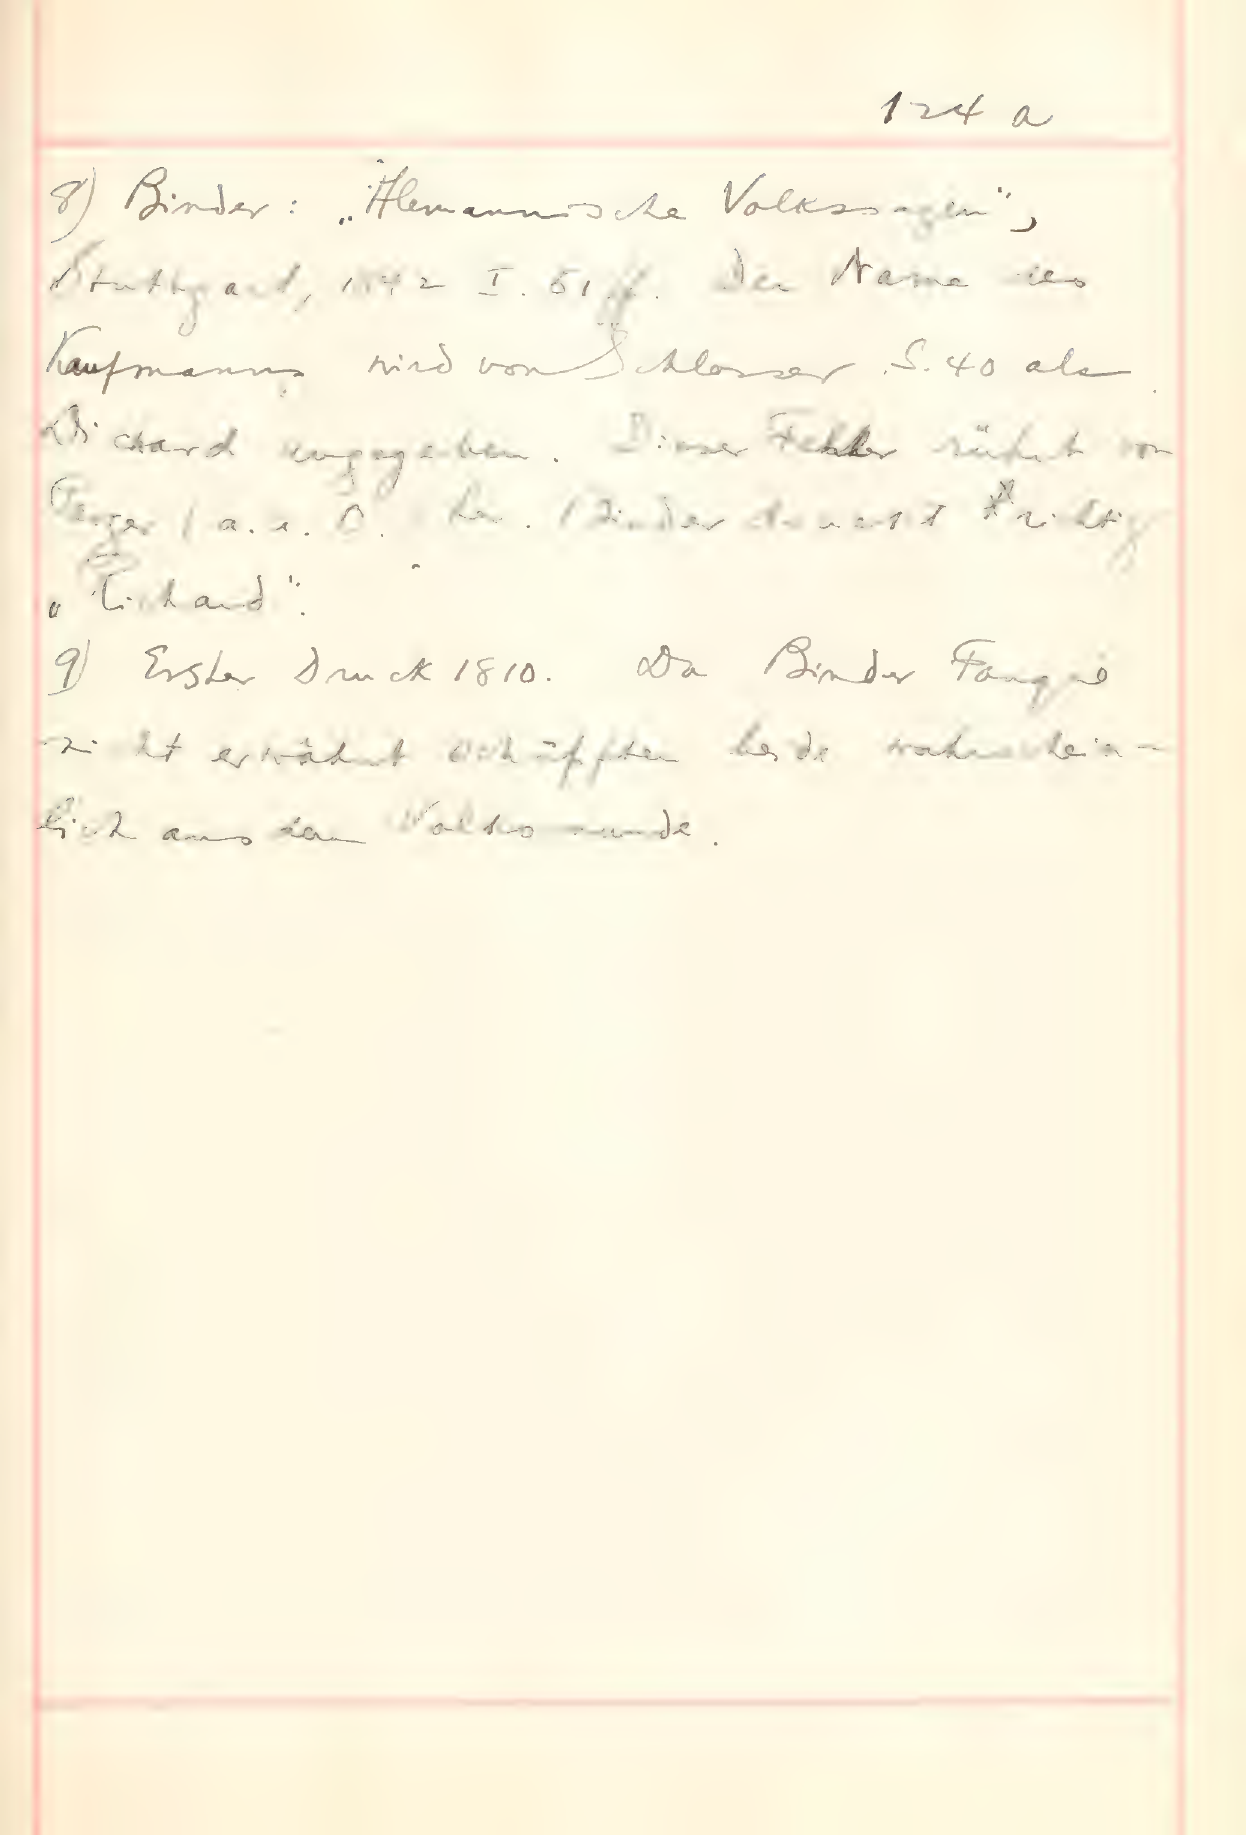 124 a
8) Binder: „Alemannische Volkssagen",
Stuttgart, 1842 I. 51 ff. Der Name des
Kaufmanns wird von Schlosser S. 40 als
angegeben. Dieser Fehler rührt von
(a. a. O. her. Binder richtig
„Lichard".
9) Erster Druck 1810. Da Binder Fouqué
nicht erwähnt schöpften beide wahrschein-
lich aus dem Volksmunde.